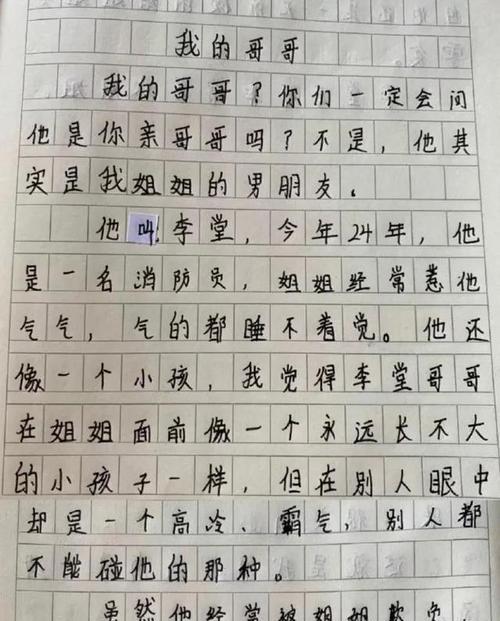 我的哥哥
我的哥哥？你们一定会问
他是你亲哥哥吗？不是，他其
实是我姐姐的男朋友。
他叫李堂，今年24年，他
是一名消防员，姐姐经常惹他
气气，气的都睡不着觉。他还
像一个小孩，我觉得李堂哥哥
在姐姐面前像一个永远长不大
的小孩子一样，但在别人眼中
却是一个高冷、霸气，别人都
不能碰他的那种。
虽然他经常被姐姐欺负，